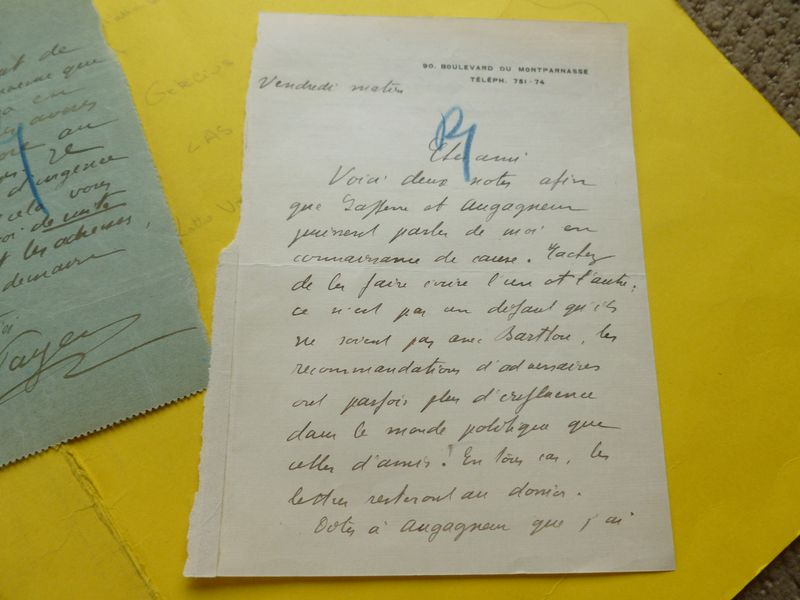 90. BOULEVARD DU MONTPARNASSE
TÉLÉPH. 751-74
Vendredi matin
Cher ami
Voici deux notes afin
que et Augagneur
puissent parler de moi en
connaissance de cause. Tachez
de les faire écrire l'un et l'autre,
ce n'est pas un défaut qu'ils
ne soient pas avec Barthou, les
recommandations d'adversaires
ont parfois plus d'influence
dans le monde politique que
celles d'amis. En tous cas, les
lettres resteront au dossier.
Dites à Augagneur que j'ai
de
que
en
au
d'urgence
cela vous
de suite
et les adresses,
demain
LAS